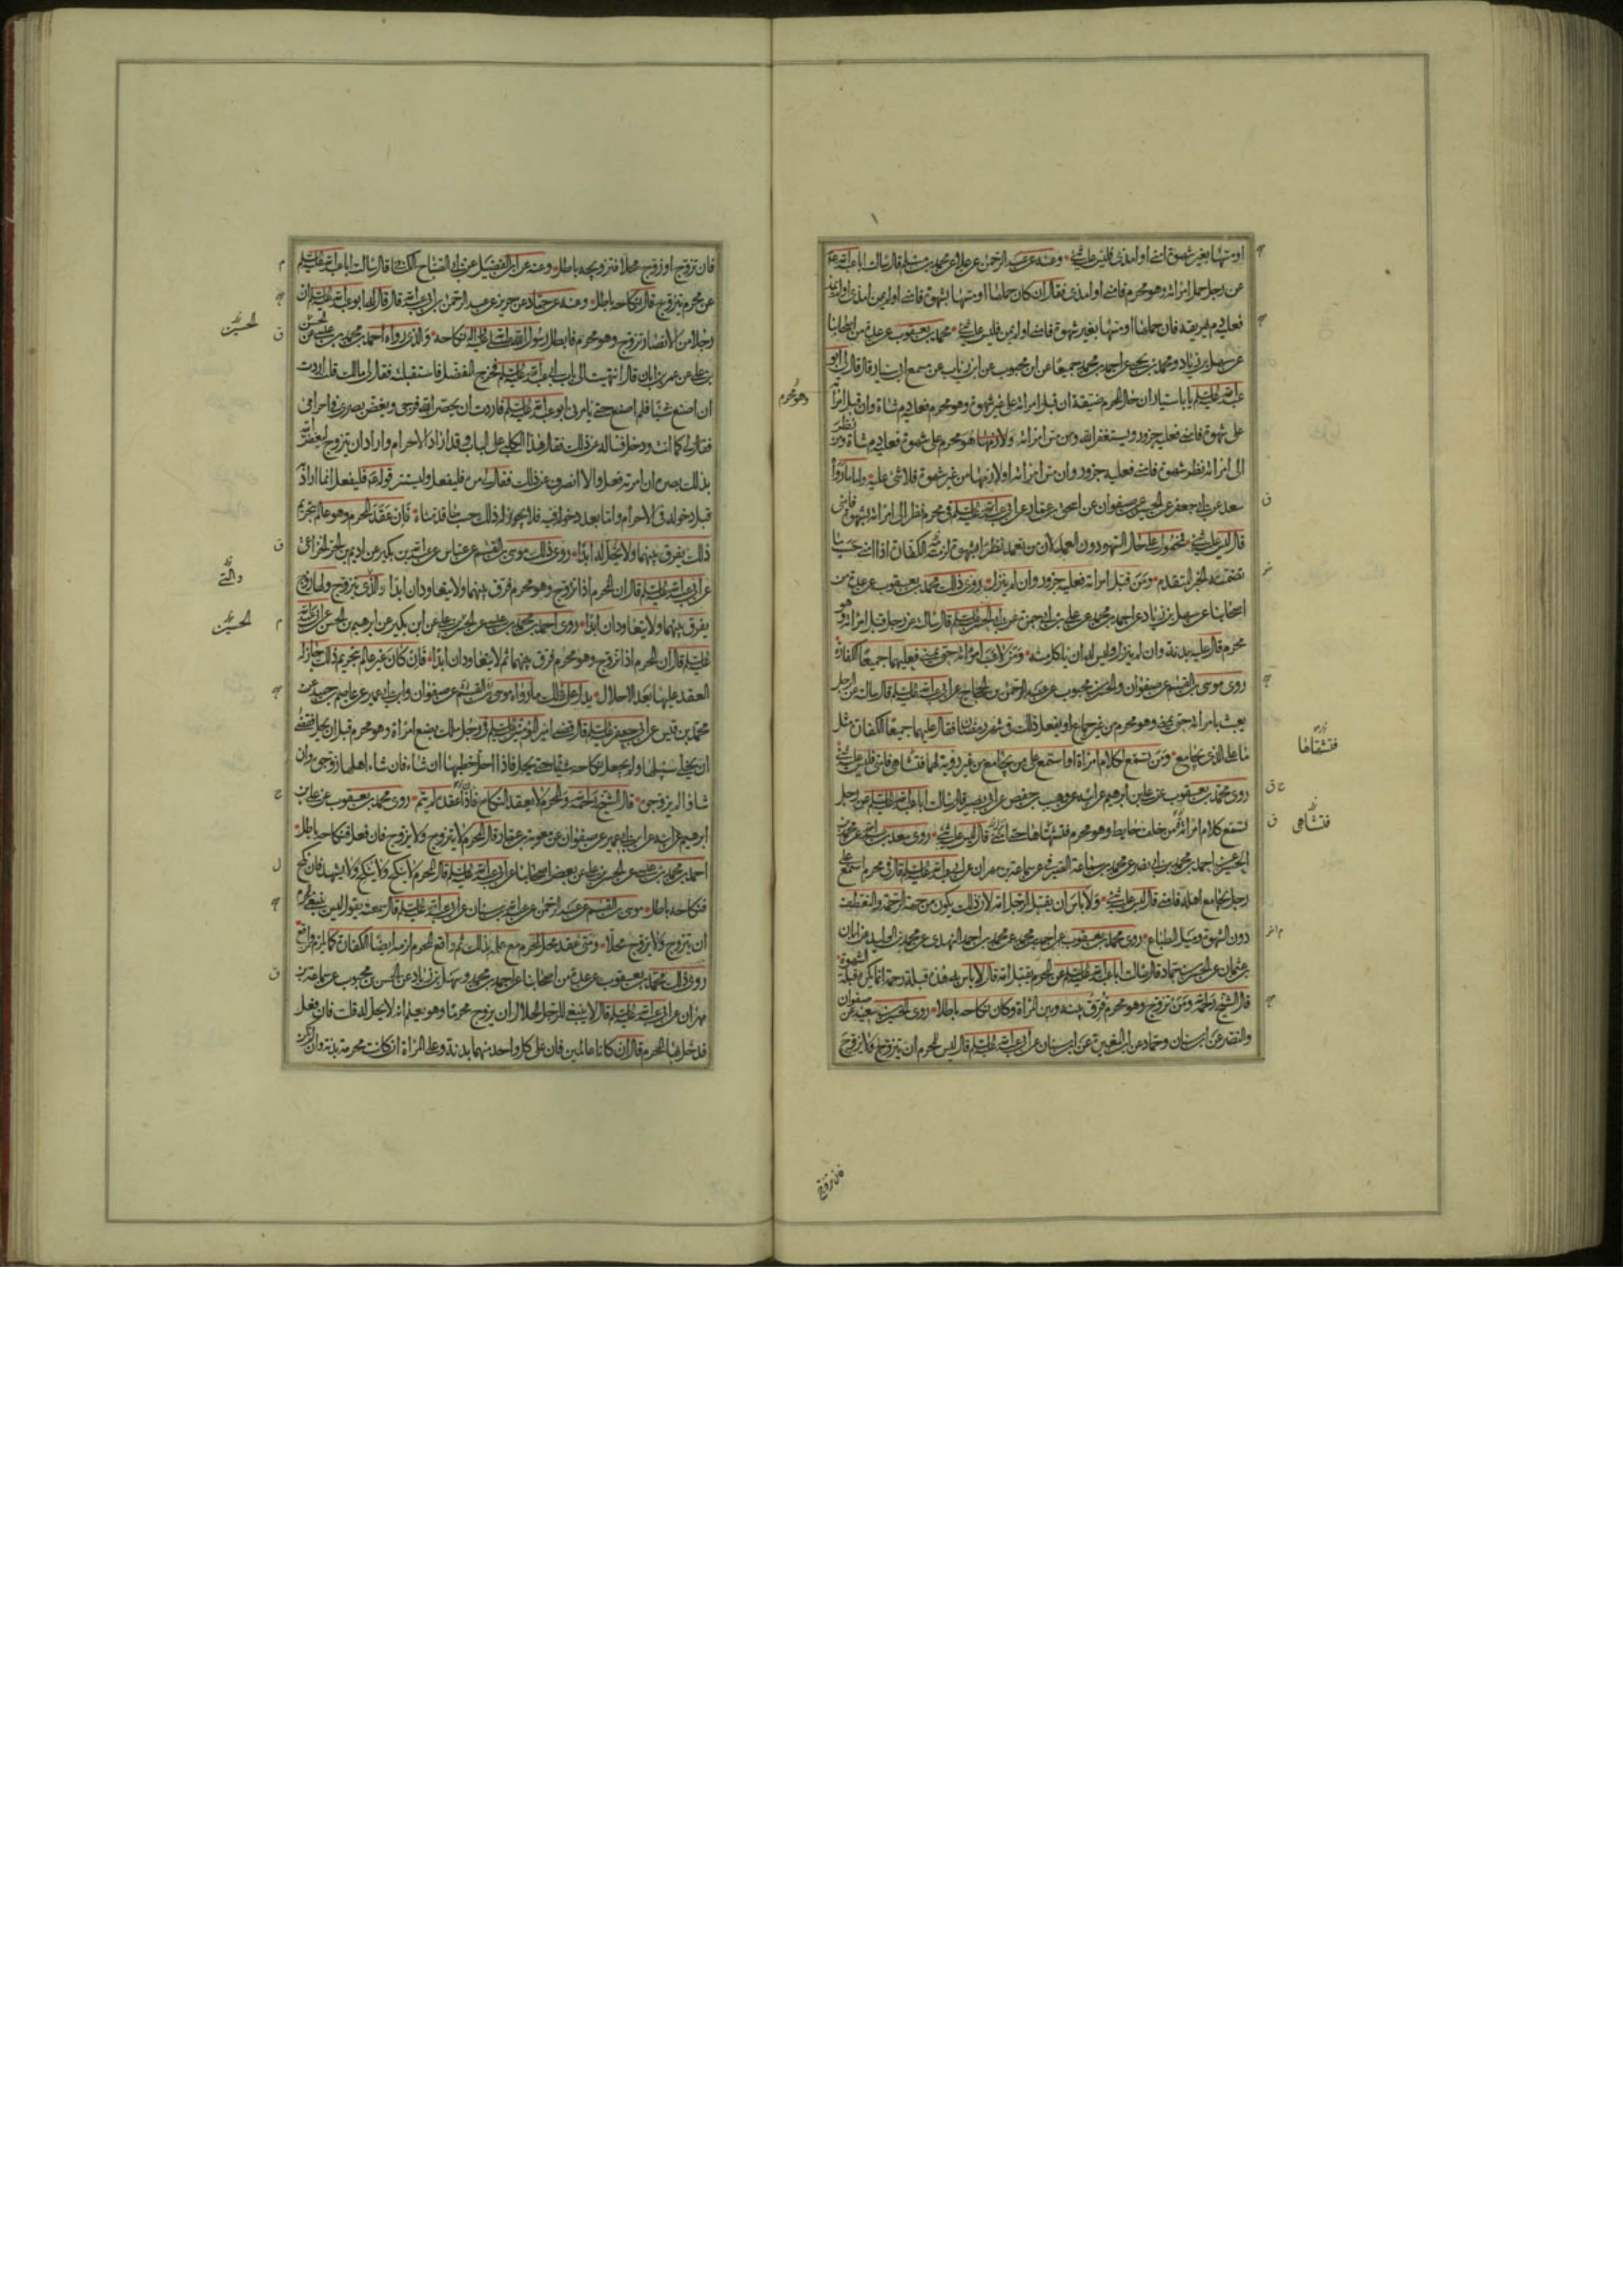 او مسها بغير شهوة امنى او امذى فليس عليه شئ وعنه عن عبد الرحمن عن علاء عن محمد بن مسلم قال سالت ابا عبد الله ع
عن رجل حمل امراته وهو محرم فامنى او امذى فقال ان كان حملها او مسها بشهوة فامنى او لم يمن امذى او لم يمذ
فعليه دم يهريقه فان حملها او مسها بغير شهوة فامنى او لم يمن فليس عليه شئ محمد بن يعقوب عن عدة من اصحابنا
عن سهل بن زياد ومحمد بن يحيى عن احمد بن محمد جميعا عن ابن محبوب عن ابن رئاب عن مسمع ابى سيار قال قال لى ابو
عبد الله عليه السلم يا با سيار ان حال المحرم ضيقة ان قبل امراته على غير شهوة وهو محرم فعليه دم شاة وان قبل امراته
على شهوة فامنى فعليه جزور ويستغفر الله ومن مس امراته وهو محرم على شهوة فعليه دم شاة ومن نظر
الى امراته نظر شهوة فامنى فعليه جزور وان مس امراته او لازمها من غير شهوة فلا شئ عليه واما ما رواه
سعد عن ابى جعفر عن الحسين عن صفوان عن اسحق بن عمار عن ابى عبد الله عليه السلم فى محرم نظر الى امراته بشهوة فامنى
قال ليس عليه شئ فمحمول على حال السهو دون العمد لان من تعمد نظرا بشهوة لزمته الكفارة اذا امنى حسب ما
تضمنه الخبر المتقدم ومن قبل امراته فعليه جزور وان لم ينزل روى ذلك محمد بن يعقوب عن عدة من
اصحابنا عن سهل بن زياد عن احمد بن محمد عن على بن ابى حمزة عن ابى الحسن عليه السلم قال سالته عن رجل قبل امراته وهو
محرم قال عليه بدنة وان لم ينزل وليس له ان ياكل منه ومن لاعب امراته حتى يمنى فعليهما جميعا الكفارة
روى موسى بن القسم عن صفوان والحسن بن محبوب عن عبد الرحمن بن الحجاج عن ابى عبد الله عليه السلم قال سالته عن الرجل
يعبث بامراته حتى يمنى وهو محرم من غير جماع او يفعل ذلك فى شهر رمضان فقال عليهما جميعا الكفارة مثل
ما على الذى يجامع ومن تسمع لكلام امراة او استمع على من يجامع من غير رؤية لهما فتشاهى فامنى فليس عليه شئ
روى محمد بن يعقوب عن على بن ابرهيم عن ابيه عن وهيب بن حفص عن ابى بصير قال سالت ابا عبد الله عليه السلم عن رجل
تسمع كلام امراة من خلف حايط وهو محرم فتشهاها حتى انزل قال ليس عليه شئ روى سعد بن عبد الله عن محمد بن
الحسين احمد بن محمد بن ابى نصر عن محمد بن سماعة الصيرفى عن سماعة بن مهران عن ابى عبد الله عليه السلم قال فى محرم استمع على
رجل يجامع اهله فامنى قال ليس عليه شئ ولا باس ان يقبل الرجل امه لان ذلك يكون من جهة الرحمة والتعطف
دون الشهوة وميل الطباع روى محمد بن يعقوب عن احمد بن محمد عن محمد بن احمد النهدى عن محمد بن الوليد عن ابان
بن عثمان عن الحسين بن حماد قال سالت ابا عبد الله عليه السلم عن المحرم يقبل امه قال لا باس به هذه قبلة رحمة انما يكره قبلة الشهوة
قال الشيخ رحمه الله ومن تزوج وهو محرم فرق بينه وبين المراة وكان نكاحه باطلا روى الحسين بن سعيد عن صفوان
والنضر عن ابن سنان وحماد عن ابن المغيرة عن ابن سنان عن ابى عبد الله عليه السلم قال ليس للمحرم ان يتزوج ولا يزوج
وهو محرم
فتشهاها
فتشاهى
فان تزوج
فان تزوج او زوج محلا فتزويجه باطل وعنه عن ابن الفضيل عن ابى الصباح الكنانى قال سالت ابا عبد الله عليه السلم
عن محرم يتزوج قال نكاحه باطل وعنه عن حماد عن حريز عن عبد الرحمن بن ابى عبد الله قال قال له ابو عبد الله عليه السلم ان
رجلا من الانصار تزوج وهو محرم فابطل رسول الله صلى الله عليه واله نكاحه والذى رواه احمد بن محمد بن عيسى عن الحسن
بن على عن عمر بن ابان قال انتهيت الى باب ابى عبد الله عليه السلم فخرج المفضل فاستقبلته فقال لى مالك قلت اردت
ان اصنع شيئا فلم اصنع حتى يامرنى ابو عبد الله عليه السلم فاردت ان يحصن الله فرجى ويغض بصرى فى احرامى
فقال لى كما انت ودخل فساله عن ذلك فقال هذا الكلبى على الباب وقد اراد الاحرام واراد ان يتزوج ليغض الله
بذلك بصره ان امرته فعل والا انصرف عن ذلك فقال لى مره فليفعل وليستتر قوله ع فليفعل انما اراد
قبل دخوله فى الاحرام واما بعد دخوله فيه فلا يجوز له ذلك حسب ما قدمناه فان عقد المحرم وهو عالم بتحريم
ذلك يفرق بينهما ولا يحل له ابدا روى ذلك موسى بن القسم عن عباس عن عبد الله بن بكير عن اديم بن الحر الخزاعى
عن ابى عبد الله عليه السلم قال ان المحرم اذا تزوج وهو محرم فرق بينهما ولا يتعاودان ابدا والذى يتزوج ولها زوج
يفرق بينهما ولا يتعاودان ابدا روى احمد بن محمد بن عيسى عن الحسن بن على عن ابن بكير عن ابرهيم بن الحسن عن ابى عبد الله
عليه السلم قال ان المحرم اذا تزوج وهو محرم فرق بينهما ثم لا يتعاودان ابدا فان كان غير عالم بتحريم ذلك جاز له
العقد عليها بعد الاحلال يدل على ذلك ما رواه موسى بن القسم عن صفوان وابن ابى عمير عن عاصم بن حميد عن
محمد بن قيس عن ابى جعفر عليه السلم قال قضى امير المؤمنين عليه السلم فى رجل ملك بضع امراة وهو محرم قبل ان يحل فقضى
ان يخلى سبيلها ولم يجعل نكاحه شيئا حتى يحل فاذا احل خطبها ان شاء فان شاء اهلها زوجوه وان
شاؤا لم يزوجوه قال الشيخ رحمه الله والمحرم لا يعقد النكاح فاذا عقد لم يتم روى محمد بن يعقوب عن على بن
ابرهيم عن ابيه عن ابن ابى عمير عن صفوان عن معوية بن عمار قال المحرم لا يتزوج ولا يزوج فان فعل فنكاحه باطل
احمد بن محمد بن عيسى عن الحسن بن على عن بعض اصحابنا عن ابى عبد الله عليه السلم قال المحرم لا ينكح ولا ينكح ولا يشهد فان نكح
فنكاحه باطل موسى بن القسم عن عبد الرحمن عن عبد الله بن سنان عن ابى عبد الله عليه السلم قال سمعته يقول ليس ينبغى للمحرم
ان يتزوج ولا يزوج محلا ومتى عقد محل لمحرم مع علمه بذلك ثم واقع المحرم لزمه ايضا الكفارة كما يلزم واقع
روى ذلك محمد بن يعقوب عن عدة من اصحابنا عن احمد بن محمد وسهل بن زياد عن الحسن بن محبوب عن سماعة بن
مهران عن ابى عبد الله عليه السلم قال لا ينبغى للرجل الحلال ان يزوج محرما وهو يعلم انه لا يحل له قلت فان فعل
فدخل بها المحرم قال ان كانا عالمين فان على كل واحد منهما بدنة وعلى المراة ان كانت محرمة بدنة وان لم تكن
الحسين
والتى
الحسين